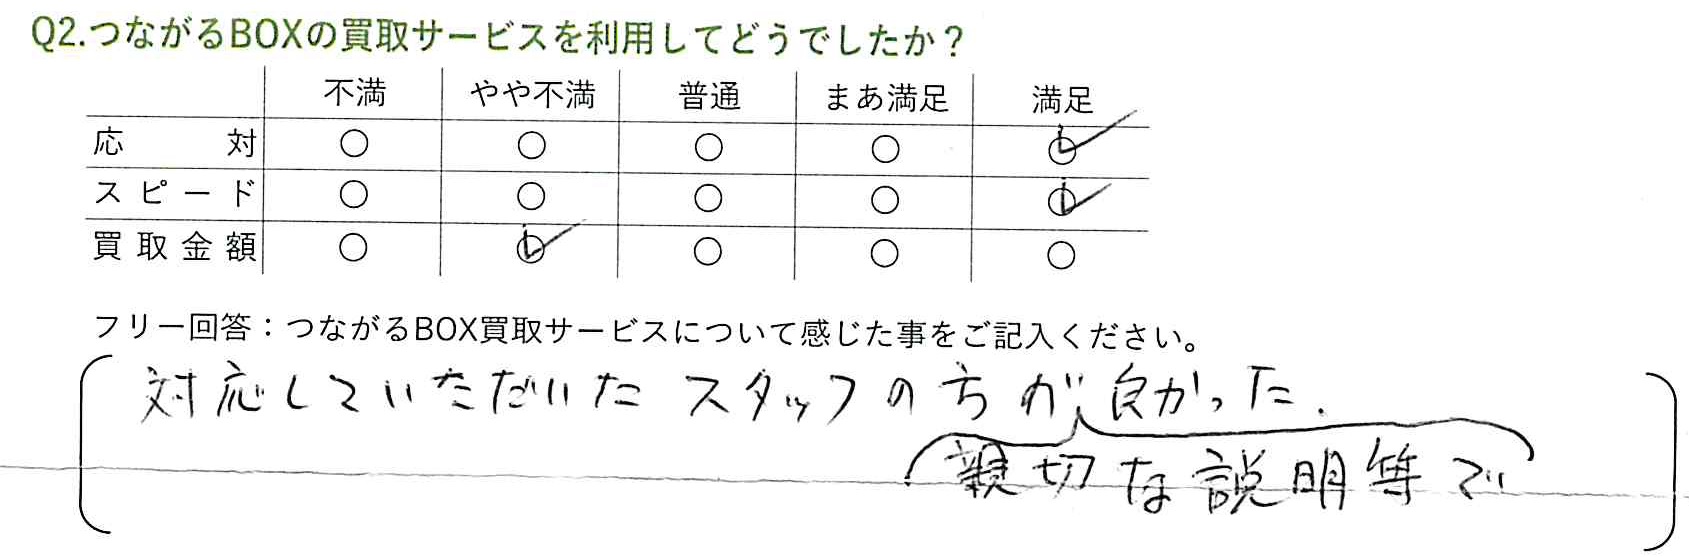 Q2.つながるBOXの買取サービスを利用してどうでしたか？
不満 やや不満 普通 まあ満足 満足
応対 ○ ○ ○ ○ ○✓
スピード ○ ○ ○ ○ ○✓
買取金額 ○ ○✓ ○ ○ ○
フリー回答：つながるBOX買取サービスについて感じた事をご記入ください。
対応していただいたスタッフの方が良かった.
親切な説明等で